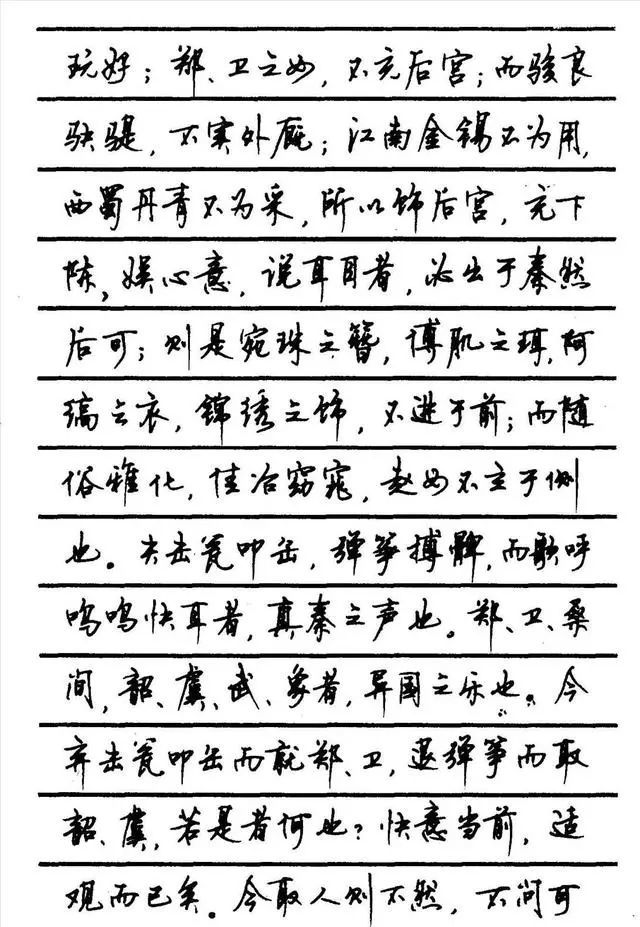 玩好；郑、卫之女，不充后宫；而骏良
駃騠，不实外厩；江南金锡不为用，
西蜀丹青不为采，所以饰后宫，充下
陈，娱心意，说耳目者，必出于秦然
后可；则是宛珠之簪，傅肌之珥，阿
缟之衣，锦绣之饰，不进于前；而随
俗雅化，佳冶窈窕，赵女不立于侧
也。夫击瓮叩缶，弹筝搏髀，而歌呼
呜呜快耳者，真秦之声也。郑、卫、桑
间，韶、虞、武、象者，异国之乐也。今
弃击瓮叩缶而就郑、卫，退弹筝而取
韶、虞，若是者何也？快意当前，适
观而已矣。今取人则不然，不问可